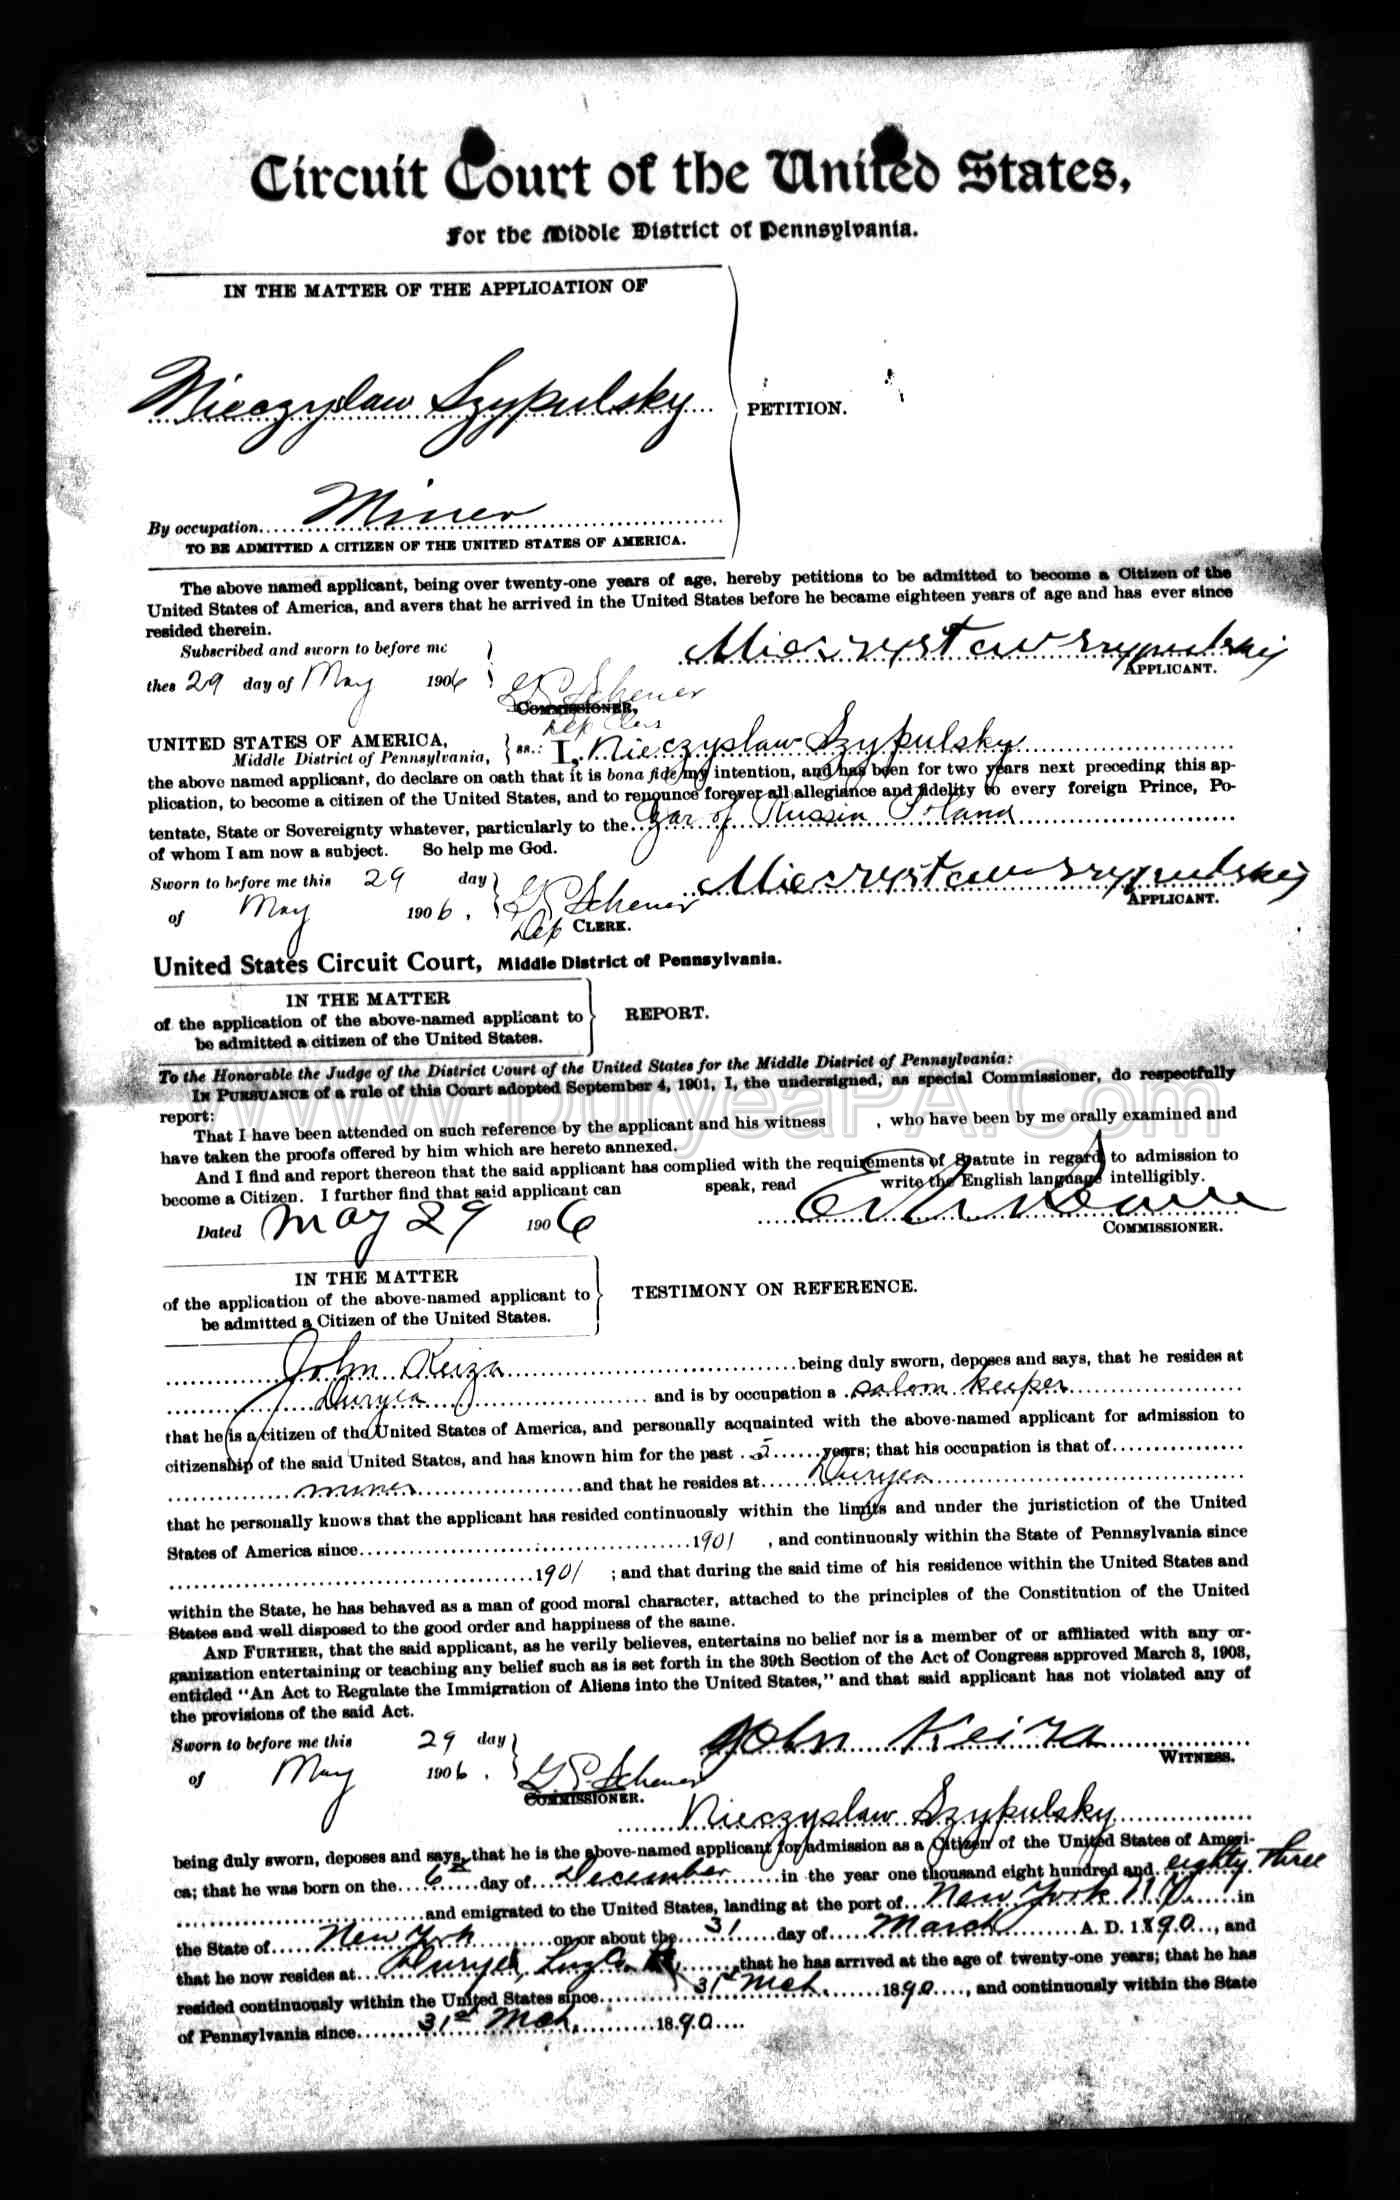 Circuit Court of the United States,
For the Middle District of Pennsylvania.
IN THE MATTER OF THE APPLICATION OF
Mieczyslaw Szypulsky
PETITION.
By occupation Miner
TO BE ADMITTED A CITIZEN OF THE UNITED STATES OF AMERICA.
The above named applicant, being over twenty-one years of age, hereby petitions to be admitted to become a Citizen of the
United States of America, and avers that he arrived in the United States before he became eighteen years of age and has ever since
resided therein.
Subscribed and sworn to before me
thes 29 day of May 1906
APPLICANT.
G P Scheuer
COMMISSIONER,
Dep Clerk
UNITED STATES OF AMERICA,
Middle District of Pennsylvania, } ss.: I, Nieczyslaw Szypulsky
the above named applicant, do declare on oath that it is bona fide my intention, and has been for two years next preceding this ap-
plication, to become a citizen of the United States, and to renounce forever all allegiance and fidelity to every foreign Prince, Po-
tentate, State or Sovereignty whatever, particularly to the Czar of Russia Poland
of whom I am now a subject. So help me God.
Sworn to before me this 29 day
of May 1906.
G P Scheuer
Dep CLERK.
APPLICANT.
United States Circuit Court, Middle District of Pennsylvania.
IN THE MATTER
of the application of the above-named applicant to
be admitted a citizen of the United States.
REPORT.
To the Honorable the Judge of the District Court of the United States for the Middle District of Pennsylvania:
IN PURSUANCE of a rule of this Court adopted September 4, 1901, I, the undersigned, as special Commissioner, do respectfully
report:
www.DuryeaPA.com
That I have been attended on such reference by the applicant and his witness , who have been by me orally examined and
have taken the proofs offered by him which are hereto annexed.
And I find and report thereon that the said applicant has complied with the requirements of Statute in regard to admission to
become a Citizen. I further find that said applicant can speak, read write the English language intelligibly.
Dated May 29 1906
COMMISSIONER.
IN THE MATTER
of the application of the above-named applicant to
be admitted a Citizen of the United States.
TESTIMONY ON REFERENCE.
John Keiza being duly sworn, deposes and says, that he resides at
Duryea and is by occupation a saloon keeper
that he is a citizen of the United States of America, and personally acquainted with the above-named applicant for admission to
citizenship of the said United States, and has known him for the past 5 years; that his occupation is that of
miner and that he resides at Duryea
that he personally knows that the applicant has resided continuously within the limits and under the juristiction of the United
States of America since 1901 , and continuously within the State of Pennsylvania since
1901 ; and that during the said time of his residence within the United States and
within the State, he has behaved as a man of good moral character, attached to the principles of the Constitution of the United
States and well disposed to the good order and happiness of the same.
AND FURTHER, that the said applicant, as he verily believes, entertains no belief nor is a member of or affiliated with any or-
ganization entertaining or teaching any belief such as is set forth in the 39th Section of the Act of Congress approved March 3, 1903,
entitled "An Act to Regulate the Immigration of Aliens into the United States," and that said applicant has not violated any of
the provisions of the said Act.
Sworn to before me this 29 day
of May 1906.
John Keiza
WITNESS.
G P Scheuer
COMMISSIONER.
Nieczyslaw Szypulsky
being duly sworn, deposes and says, that he is the above-named applicant for admission as a Citizen of the United States of Ameri-
ca; that he was born on the 6th day of December in the year one thousand eight hundred and eighty three
and emigrated to the United States, landing at the port of New York N.Y. in
the State of New York on or about the 31 day of March A. D. 1890, and
that he now resides at Duryea Luz Co. Pa that he has arrived at the age of twenty-one years; that he has
resided continuously within the United States since 31st Mch. 1890, and continuously within the State
of Pennsylvania since 31st Mch, 1890